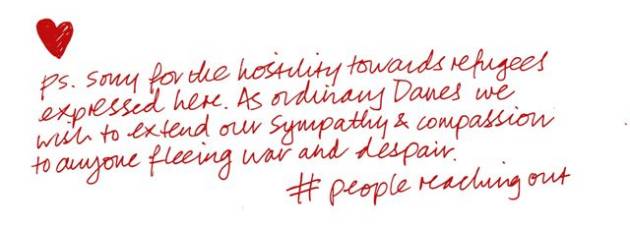 Ps. Sorry for the hostility towards refugees
expressed here. As ordinary Danes we
wish to extend our sympathy & compassion
to anyone fleeing war and despair.
# people reaching out